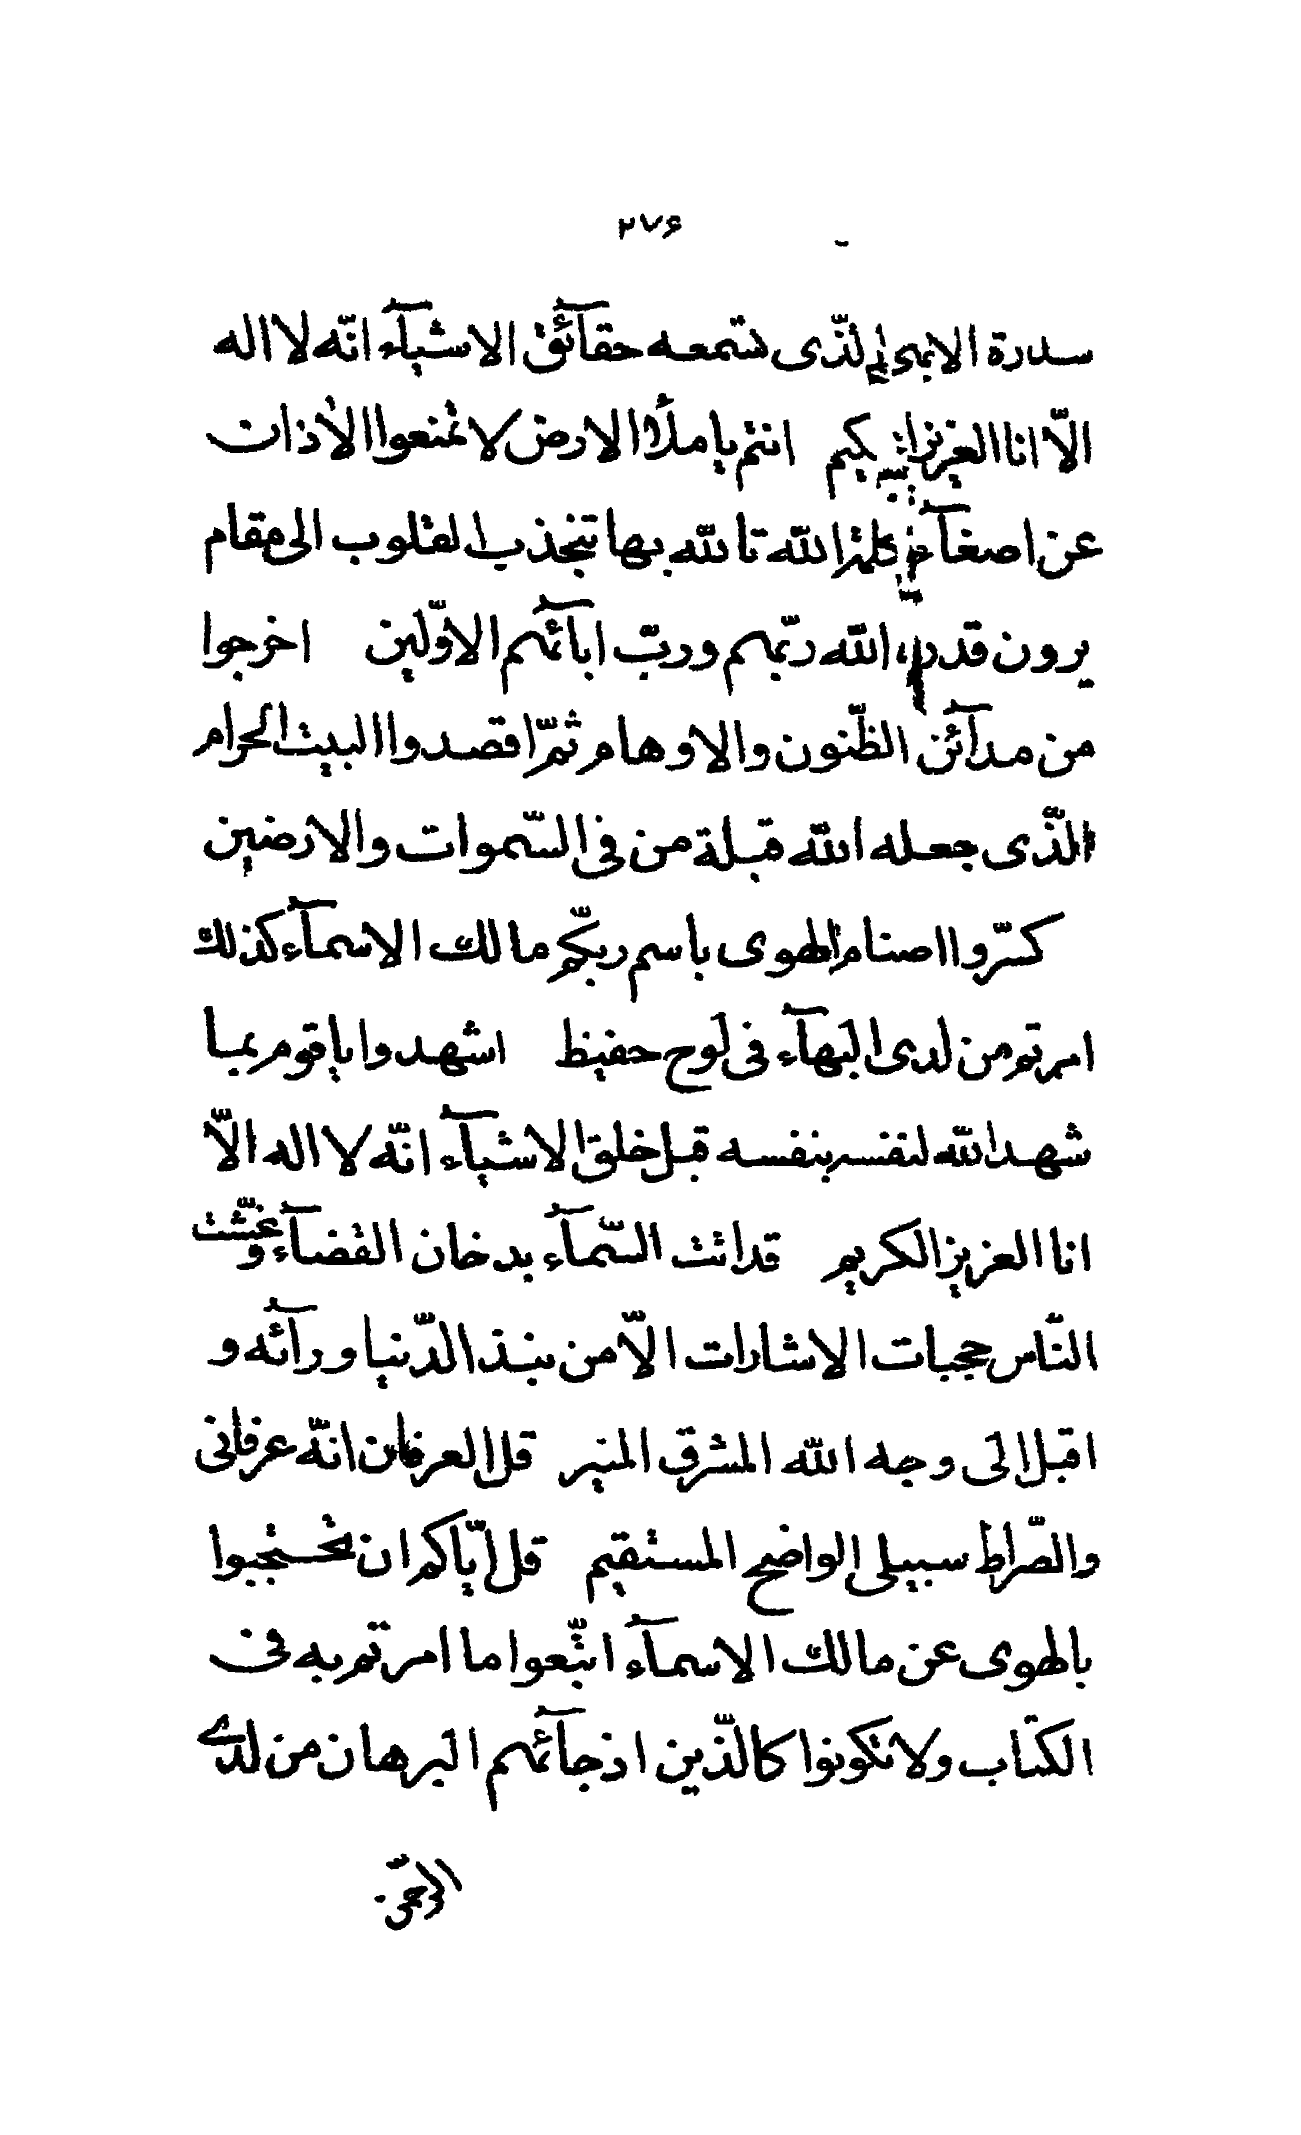 ۲۷۶
سدرة الابهى الّذى تسمعه حقآئق الاشيآء انّه لا اله
الّا انا العزيز الحكيم انتم يا ملأ الارض لا تمنعوا الاذات
عن اصغآء كلمة الله تالله بها تنجذب القلوب الى مقام
يرون قدرة الله ربّهم وربّ ابآئهم الاوّلين اخرجوا
من مدآئن الظّنون والاوهام ثمّ اقصدوا البيت الحرام
الّذى جعله الله قبلة من فى السّموات والارضين
كسّروا اصنام الهوى باسم ربّكم مالك الاسمآء كذلك
امرتم من لدى البهآء فى لوح حفيظ اشهدوا يا قوم بما
شهد الله لنفسه بنفسه قبل خلق الاشيآء انّه لا اله الّا
انا العزيز الكريم قد اتت السّمآء بدخان القضآء وغشّت
النّاس حجبات الاشارات الّا من نبذ الدّنيا ورآئه و
اقبل الى وجه الله المشرق المنير قل العرفان انّه عرفانى
والصّراط سبيلى الواضح المستقيم قل ايّاكم ان تحتجبوا
بالهوى عن مالك الاسمآء اتّبعوا ما امرتم به فى
الكتاب ولا تكونوا كالّذين اذ جآئهم البرهان من لدى
الرّحمن